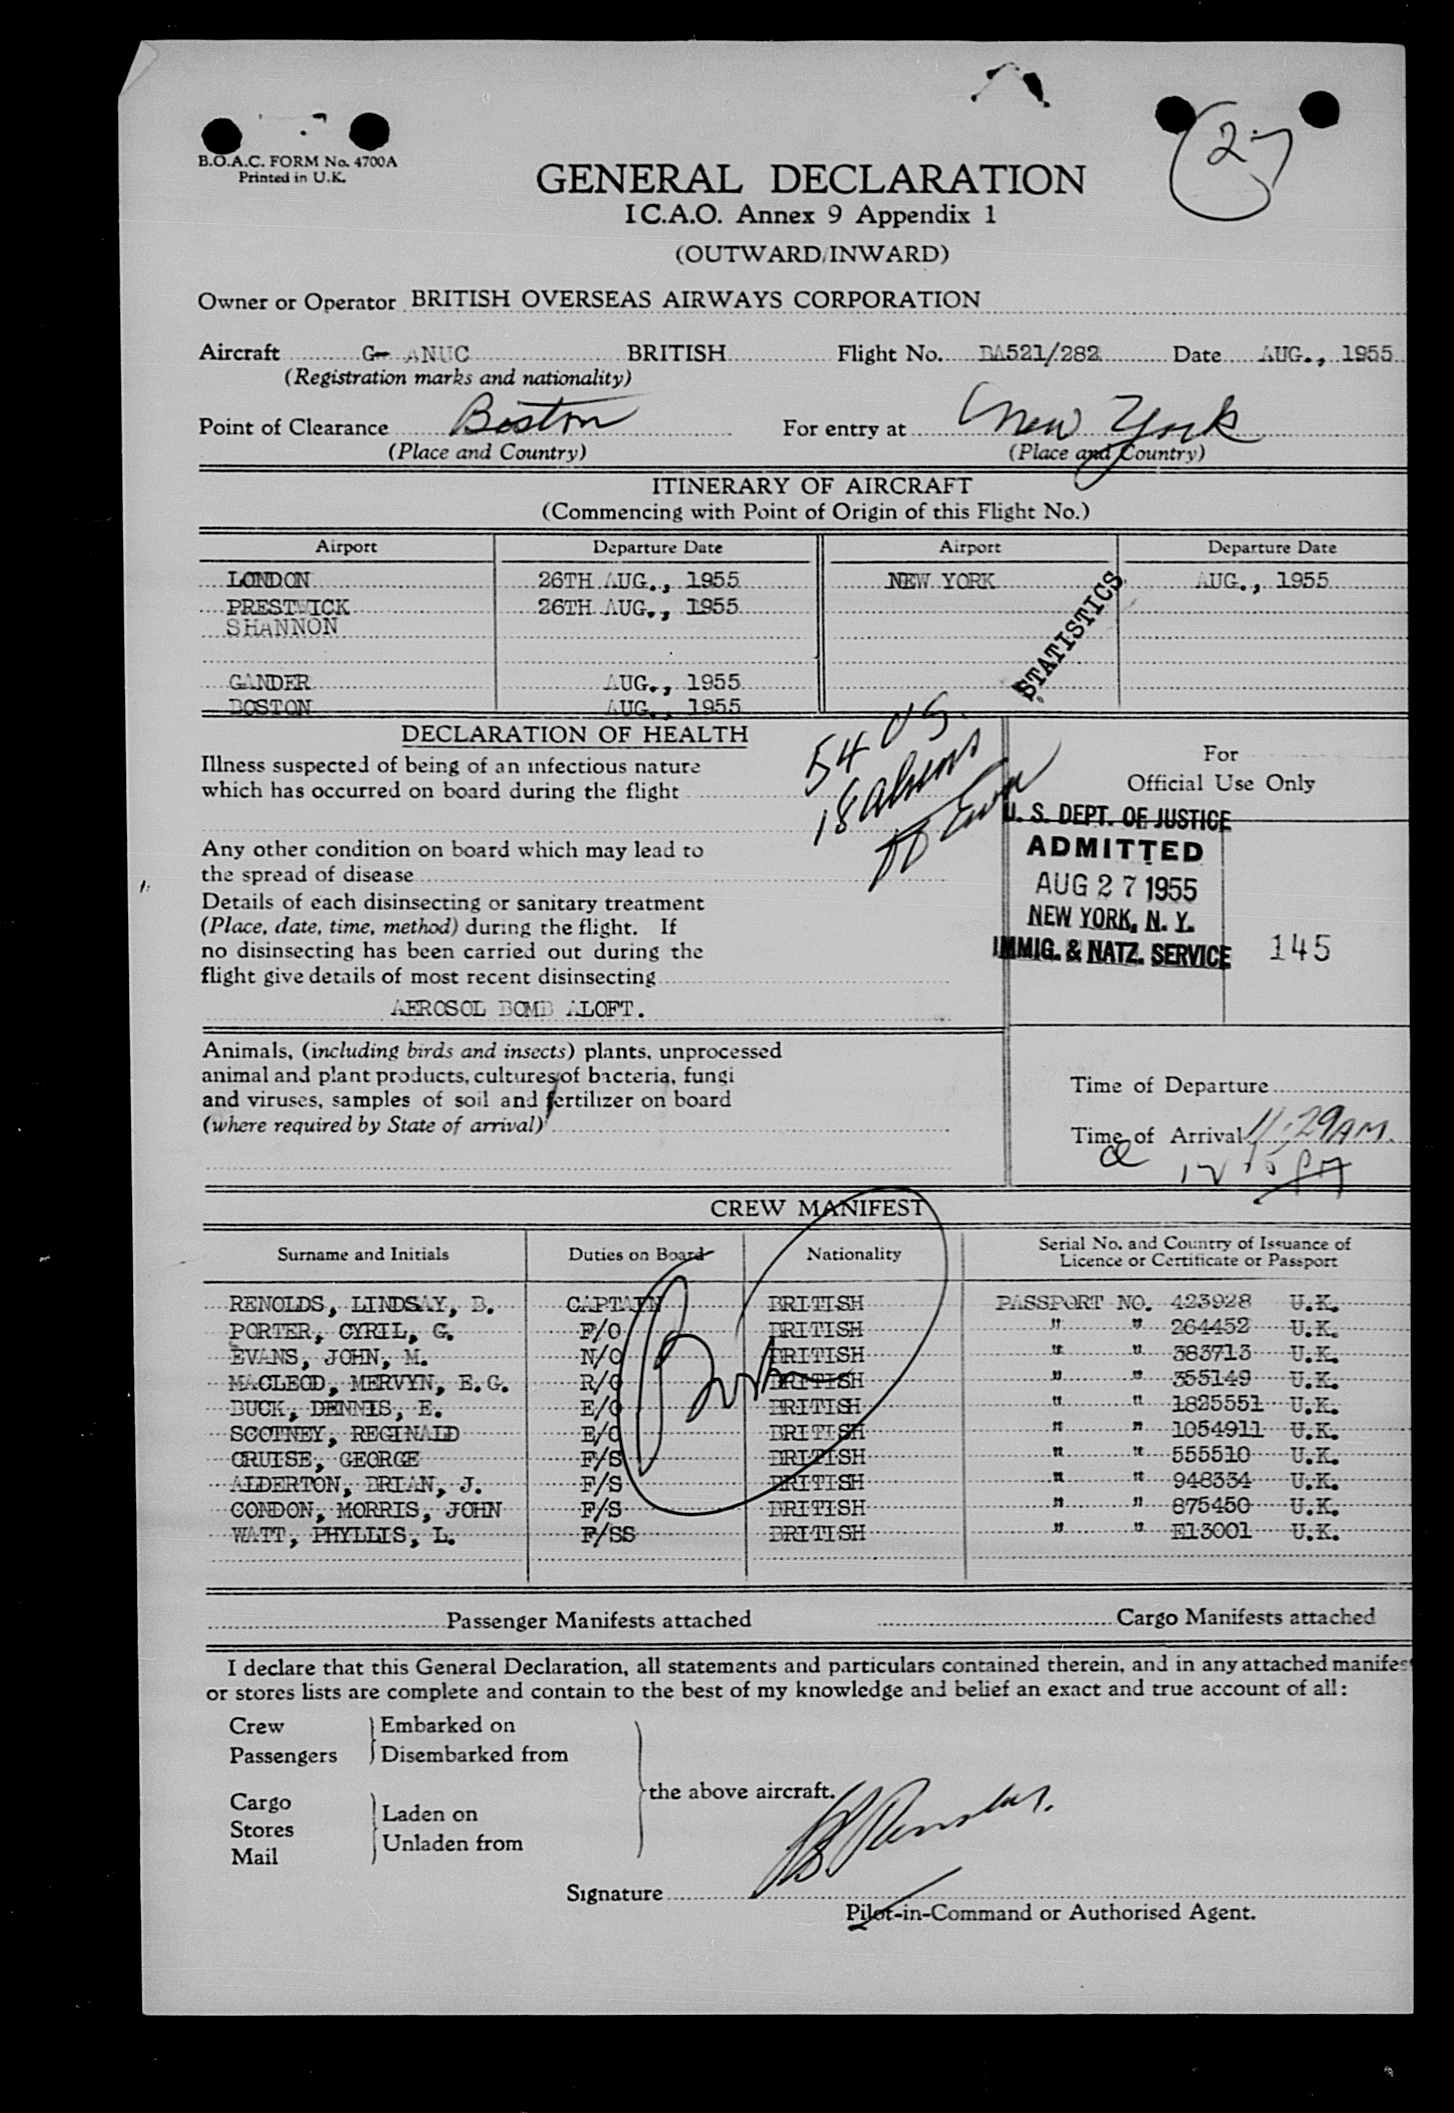 B.O.A.C. FORM No. 4700A
Printed in U.K.
27
GENERAL DECLARATION
I C.A.O. Annex 9 Appendix 1
(OUTWARD/INWARD)
Owner or Operator BRITISH OVERSEAS AIRWAYS CORPORATION
Aircraft G- ANUC BRITISH Flight No. BA521/282 Date AUG., 1955
(Registration marks and nationality)
Point of Clearance Boston For entry at New York
(Place and Country) (Place and Country)
ITINERARY OF AIRCRAFT
(Commencing with Point of Origin of this Flight No.)
Airport Departure Date Airport Departure Date
LONDON 26TH AUG., 1955 NEW YORK AUG., 1955
PRESTWICK 26TH AUG., 1955
SHANNON
STATISTICS
GANDER AUG., 1955
BOSTON AUG., 1955
DECLARATION OF HEALTH
54 US
18 aliens
For
Official Use Only
Illness suspected of being of an infectious nature
which has occurred on board during the flight
U. S. DEPT. OF JUSTICE
ADMITTED
AUG 27 1955
NEW YORK, N. Y.
IMMIG. & NATZ. SERVICE 145
Any other condition on board which may lead to
the spread of disease
Details of each disinsecting or sanitary treatment
(Place, date, time, method) during the flight. If
no disinsecting has been carried out during the
flight give details of most recent disinsecting
AEROSOL BOMB ALOFT.
Animals, (including birds and insects) plants, unprocessed
animal and plant products, cultures of bacteria, fungi
and viruses, samples of soil and fertilizer on board
(where required by State of arrival)
Time of Departure
Time of Arrival 11:29 AM.
CREW MANIFEST
Surname and Initials Duties on Board Nationality Serial No. and Country of Issuance of
Licence or Certificate or Passport
RENOLDS, LINDSAY, B. CAPTAIN BRITISH PASSPORT NO. 423928 U.K.
PORTER, CYRIL, G. F/O BRITISH " " 264452 U.K.
EVANS, JOHN, M. N/O BRITISH " " 383713 U.K.
MACLEOD, MERVYN, E.G. R/O BRITISH " " 355149 U.K.
BUCK, DENNIS, E. E/O BRITISH " " 1825551 U.K.
SCOTNEY, REGINALD E/O BRITISH " " 1054911 U.K.
CRUISE, GEORGE F/S BRITISH " " 555510 U.K.
ALDERTON, BRIAN, J. F/S BRITISH " " 948334 U.K.
CONDON, MORRIS, JOHN F/S BRITISH " " 875450 U.K.
WATT, PHYLLIS, L. F/SS BRITISH " " E13001 U.K.
Passenger Manifests attached Cargo Manifests attached
I declare that this General Declaration, all statements and particulars contained therein, and in any attached manifes
or stores lists are complete and contain to the best of my knowledge and belief an exact and true account of all:
Crew Embarked on
Passengers Disembarked from
the above aircraft.
Cargo
Stores Laden on
Mail Unladen from
Signature
Pilot-in-Command or Authorised Agent.